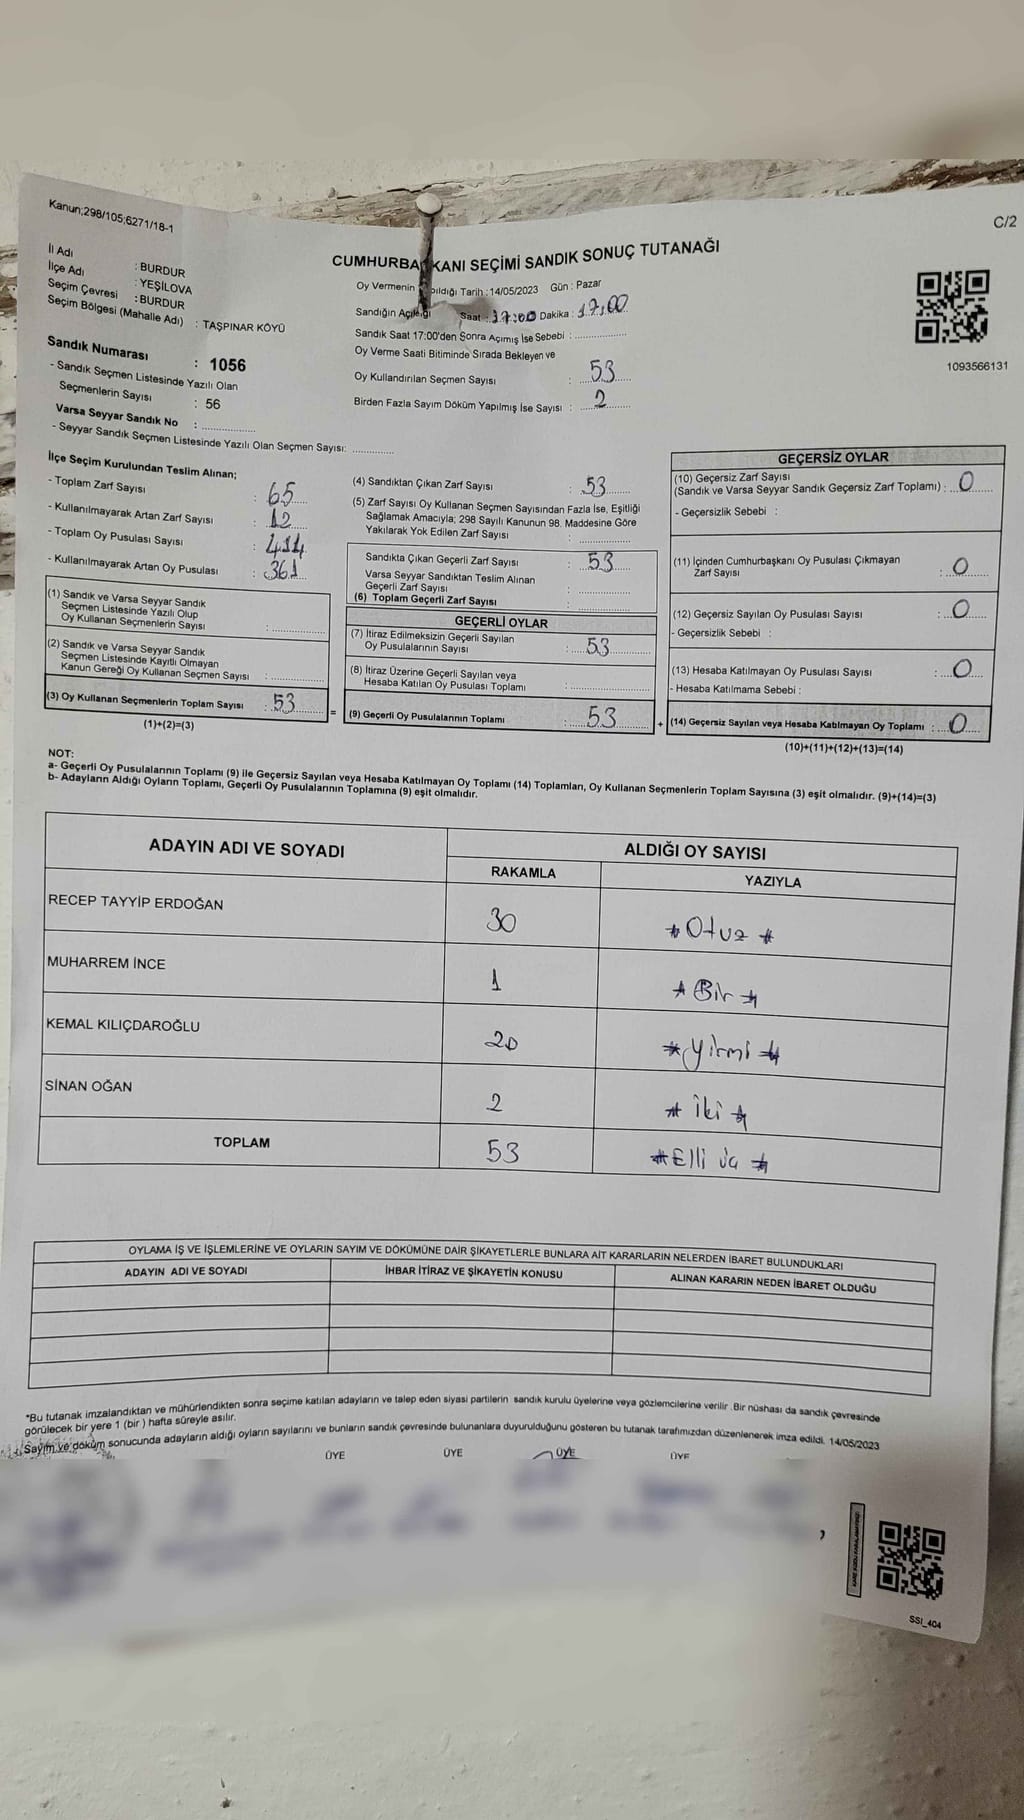 Kanun;298/105;6271/18-1
C/2
İl Adı : BURDUR
İlçe Adı : YEŞİLOVA
Seçim Çevresi : BURDUR
Seçim Bölgesi (Mahalle Adı) : TAŞPINAR KÖYÜ
Sandık Numarası : 1056
- Sandık Seçmen Listesinde Yazılı Olan
Seçmenlerin Sayısı : 56
Varsa Seyyar Sandık No :
- Seyyar Sandık Seçmen Listesinde Yazılı Olan Seçmen Sayısı:
CUMHURBA KANI SEÇİMİ SANDIK SONUÇ TUTANAĞI
Oy Vermenin pıldığı Tarih : 14/05/2023 Gün : Pazar
Sandığın Açıldığı Saat : 17:00 Dakika : 17,00
Sandık Saat 17:00'den Sonra Açımış İse Sebebi :
Oy Verme Saati Bitiminde Sırada Bekleyen ve
Oy Kullandırılan Seçmen Sayısı : 53
Birden Fazla Sayım Döküm Yapılmış İse Sayısı : 2
1093566131
İlçe Seçim Kurulundan Teslim Alınan;
- Toplam Zarf Sayısı : 65
- Kullanılmayarak Artan Zarf Sayısı : 12
- Toplam Oy Pusulası Sayısı : 414
- Kullanılmayarak Artan Oy Pusulası : 361
(1) Sandık ve Varsa Seyyar Sandık
Seçmen Listesinde Yazılı Olup
Oy Kullanan Seçmenlerin Sayısı :
(2) Sandık ve Varsa Seyyar Sandık
Seçmen Listesinde Kayıtlı Olmayan
Kanun Gereği Oy Kullanan Seçmen Sayısı :
(3) Oy Kullanan Seçmenlerin Toplam Sayısı : 53
(1)+(2)=(3)
=
(4) Sandıktan Çıkan Zarf Sayısı : 53
(5) Zarf Sayısı Oy Kullanan Seçmen Sayısından Fazla İse, Eşitliği
Sağlamak Amacıyla; 298 Sayılı Kanunun 98. Maddesine Göre
Yakılarak Yok Edilen Zarf Sayısı :
Sandıkta Çıkan Geçerli Zarf Sayısı : 53
Varsa Seyyar Sandıktan Teslim Alınan
Geçerli Zarf Sayısı :
(6) Toplam Geçerli Zarf Sayısı :
GEÇERLİ OYLAR
(7) İtiraz Edilmeksizin Geçerli Sayılan
Oy Pusulalarının Sayısı : 53
(8) İtiraz Üzerine Geçerli Sayılan veya
Hesaba Katılan Oy Pusulası Toplamı :
(9) Geçerli Oy Pusulalarının Toplamı : 53
+
GEÇERSİZ OYLAR
(10) Geçersiz Zarf Sayısı
(Sandık ve Varsa Seyyar Sandık Geçersiz Zarf Toplamı) : 0
- Geçersizlik Sebebi :
(11) İçinden Cumhurbaşkanı Oy Pusulası Çıkmayan
Zarf Sayısı : 0
(12) Geçersiz Sayılan Oy Pusulası Sayısı : 0
- Geçersizlik Sebebi :
(13) Hesaba Katılmayan Oy Pusulası Sayısı : 0
- Hesaba Katılmama Sebebi :
(14) Geçersiz Sayılan veya Hesaba Katılmayan Oy Toplamı : 0
(10)+(11)+(12)+(13)=(14)
NOT:
a- Geçerli Oy Pusulalarının Toplamı (9) ile Geçersiz Sayılan veya Hesaba Katılmayan Oy Toplamı (14) Toplamları, Oy Kullanan Seçmenlerin Toplam Sayısına (3) eşit olmalıdır. (9)+(14)=(3)
b- Adayların Aldığı Oyların Toplamı, Geçerli Oy Pusulalarının Toplamına (9) eşit olmalıdır.
ADAYIN ADI VE SOYADI
ALDIĞI OY SAYISI
RAKAMLA YAZIYLA
RECEP TAYYİP ERDOĞAN 30 * Otuz *
MUHARREM İNCE 1 * Bir *
KEMAL KILIÇDAROĞLU 20 * Yirmi *
SİNAN OĞAN 2 * İki *
TOPLAM 53 * Elli üç *
OYLAMA İŞ VE İŞLEMLERİNE VE OYLARIN SAYIM VE DÖKÜMÜNE DAİR ŞİKAYETLERLE BUNLARA AİT KARARLARIN NELERDEN İBARET BULUNDUKLARI
ADAYIN ADI VE SOYADI İHBAR İTİRAZ VE ŞİKAYETİN KONUSU ALINAN KARARIN NEDEN İBARET OLDUĞU
*Bu tutanak imzalandıktan ve mühürlendikten sonra seçime katılan adayların ve talep eden siyasi partilerin sandık kurulu üyelerine veya gözlemcilerine verilir .Bir nüshası da sandık çevresinde
görülecek bir yere 1 (bir ) hafta süreyle asılır.
Sayım ve döküm sonucunda adayların aldığı oyların sayılarını ve bunların sandık çevresinde bulunanlara duyurulduğunu gösteren bu tutanak tarafımızdan düzenlenerek imza edildi. 14/05/2023
ÜYE ÜYE ÜYE ÜYE
SSI_404